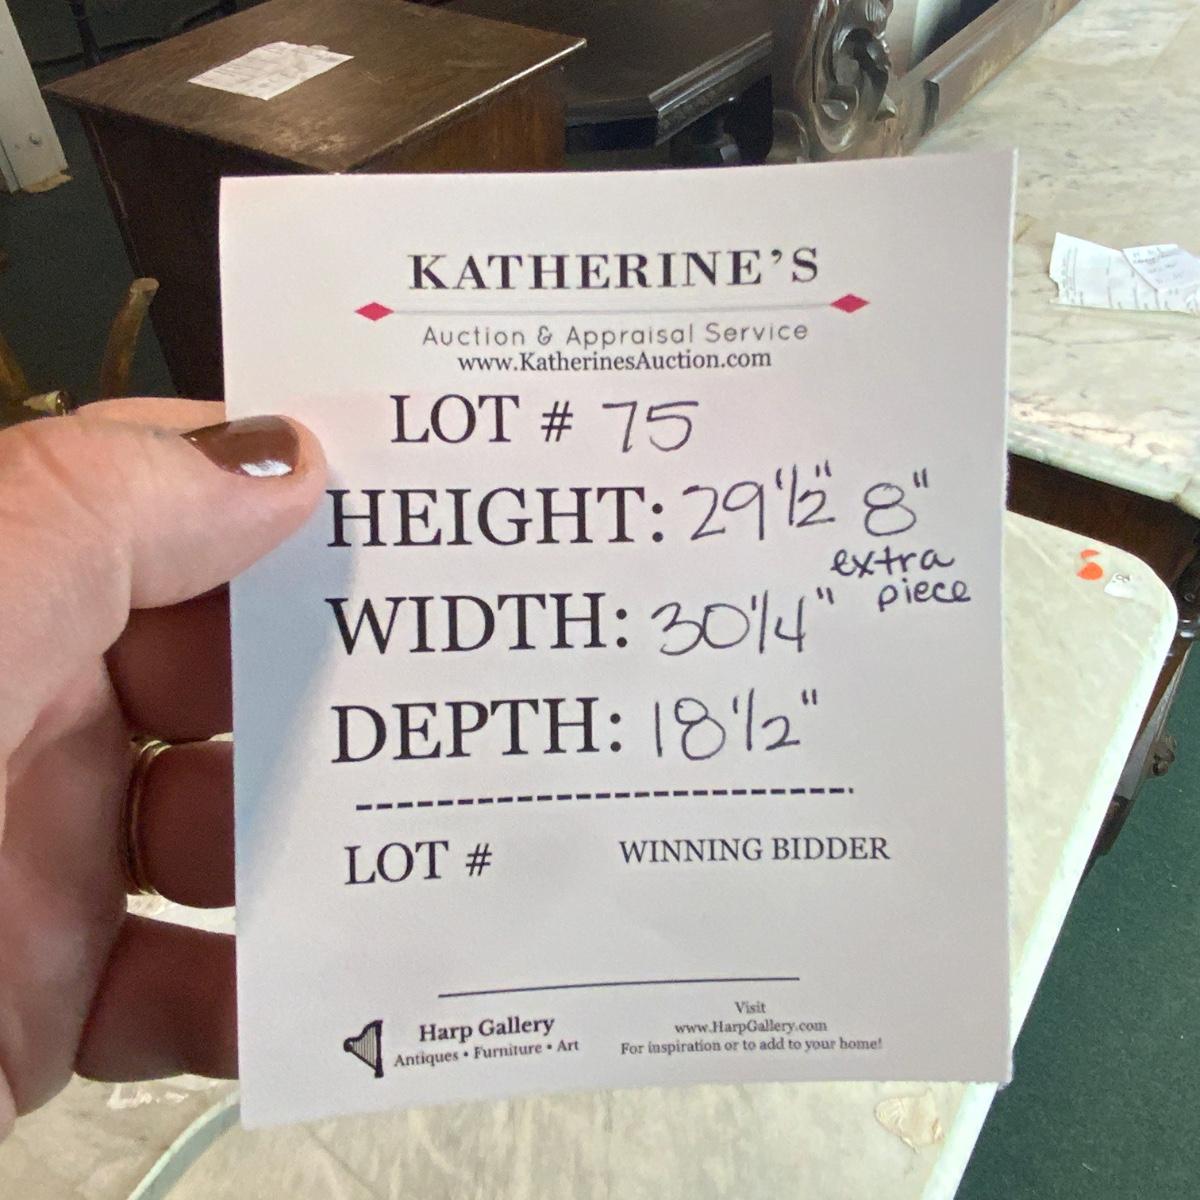 KATHERINE'S
Auction & Appraisal Service
www.KatherinesAuction.com
LOT # 75
HEIGHT: 29 1/2" 8"
extra
piece
WIDTH: 30 1/4"
DEPTH: 18 1/2"
LOT #
WINNING BIDDER
Harp Gallery
Antiques • Furniture • Art
Visit
www.HarpGallery.com
For inspiration or to add to your home!